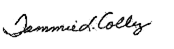 Tammie L. Colly